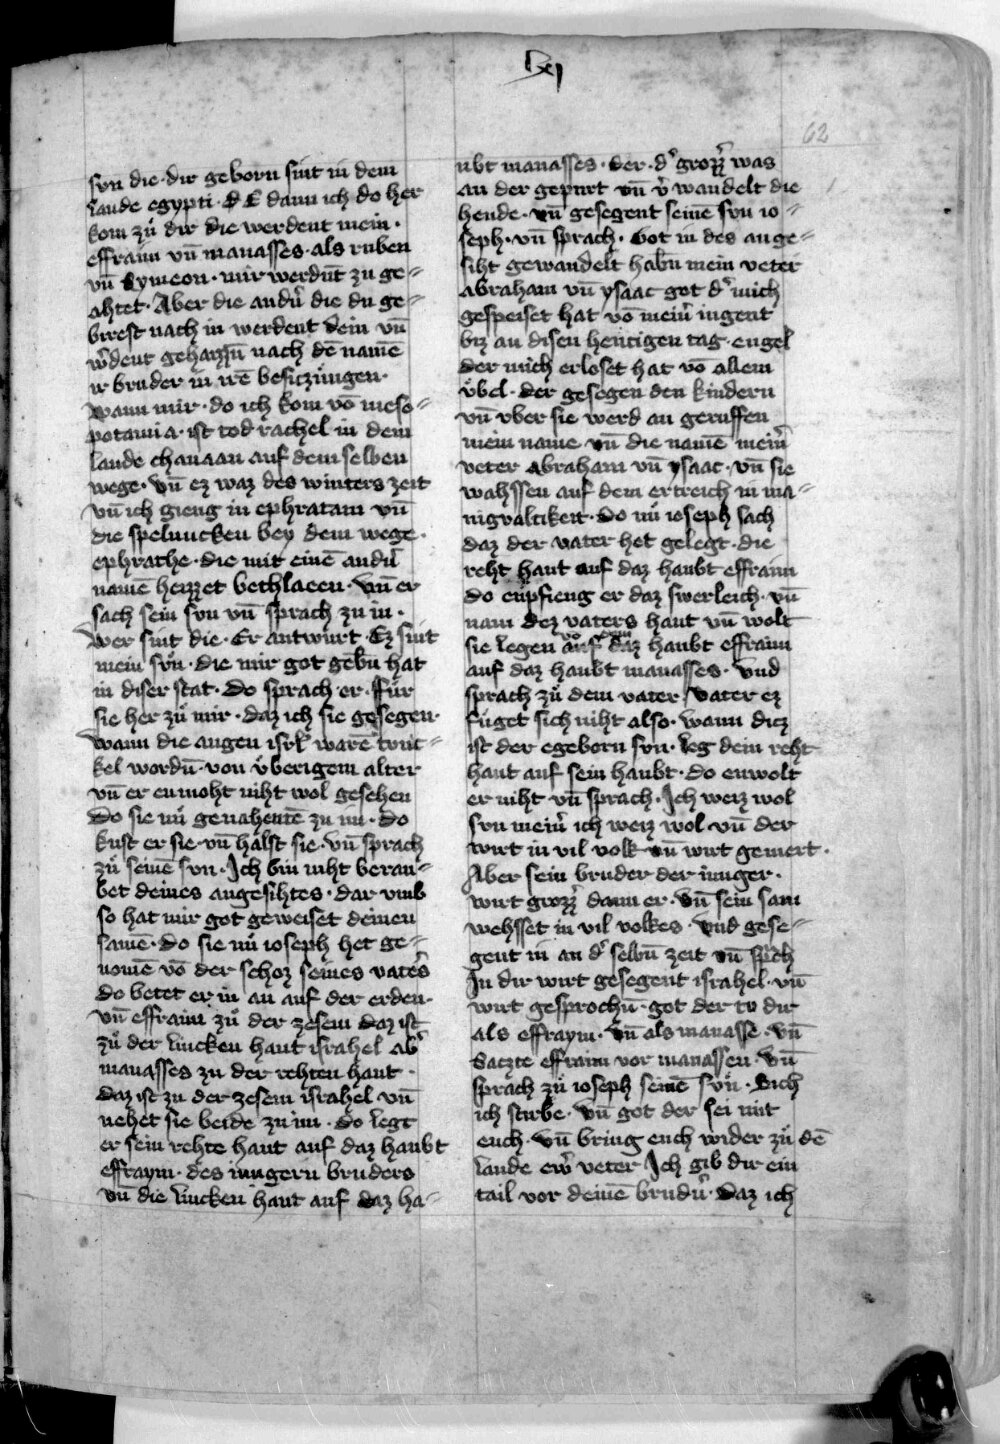 lxj
62
sun die · dir geborn sint in dem
lande egypti · d E dann ich do her
kom zuͦ dir die werdent mein ·
effraim vn̄ manasses · als ruben
vn̄ Symeon · mir werdn̄t zu ge-
ahtet · Aber die andn̄ die du ge-
birest nach in werdent dein vn̄
nach dē namē
ir bruder in irē besiczūngen ·
wann mir · do ich kom vō meso-
potamia · ist tod rachel in dem
lande chanaan auf dem selben
wege · vn̄ ez waz des winters zeit
vn̄ ich gieng in ephratam vn̄
die speluncken bey dem wege ·
ephrathe · die mit einē andn̄
namē heizzet bethlaeen · vn̄ er
sach sein sun vn̄ sprach zu in ·
wer sint die · Er antwurt · Ez sint
mein suͤn · die mir got gebn̄ hat
in diser stat · Do sprach er · fuͤr
sie her zuͦ mir · daz ich sie gesegen ·
wann die augen isrl̄ warē tunc-
kel wordn̄ · von uͤberigem alter
vn̄ er enmoht niht wol gesehen
Do sie nuͦ genahentē zu im · do
kust er sie · vn̄ halst sie · vn̄ sprach
zuͦ seinē sun · Ich bin niht berau-
bet deines angesihtes · dar vmb
so hat mir got geweiset deinen
samē · do sie nū ioseph het ge-
nomē vō der schoz seines vaters
do betet er in an auf der erden ·
vn̄ effraim zuͦ der zesem daz ist
zuͦ der lincken hant israhel ab̕
manasses zu der rehten hant ·
daz ist zu der zesem israhel vn̄
nehet sie beide zu im · do legt
er sein rehte hant auf daz haubt
effraym · des iungern bruders
vn̄ die lincken hant auf daz ha-
ubt manasses · der · d̕ grozz̕ was
an der gepurt vn̄ v̕wandelt die
hende · vn̄ gesegent seinē sun io-
seph · vn̄ sprach · Got in des ange-
siht gewandelt habn̄ mein veter
abraham vn̄ ysaac got d̕ mich
gespeiset hat vō mein̕ iugent
biz an disen heutigen tag · engel
der mich erloset hat vō allem
uͤbel · der gesegen den kindern
vn̄ vber sie werd an geruffen
mein name vn̄ die namē mein̕
veter Abraham vn̄ ysaac · vn̄ sie
wahssen auf dem ertreich in ma-
nigvaltikeit · do nuͦ ioseph sach
daz der vater het gelegt · die
reht hant auf daz haubt effraim
do enpfieng er daz swerleich · vn̄
nam dez vaters hant vn̄ wolt
sie legen von dem haubt effraim
auf daz haubt manasses · vnd
sprach zuͦ dem vater / vater ez
fuͤget sich niht also · wann dicz
ist der egeborn sun · leg dein reht
hant auf sein haubt · do enwolt
er niht vn̄ sprach · Ich weiz wol
sun mein̕ ich weiz wol vn̄ der
wirt in vil volk vn̄ wirt gemert ·
Aber sein bruder der iunger ·
wirt grozz̕ dann er · vn̄ sein sam
wehsset in vil volkes · vnd gese-
gent in an d̕ selbn̄ zeit vn̄ sprach
In dir wirt gesegent israhel · vn̄
wirt gesprochn̄ · got der tu dir
als effraym · vn̄ als manasse · vn̄
Saczte effraim vor manassen · vn̄
sprach zuͦ ioseph seinē sun · Sich
ich stirbe · vn̄ got der sei mit
euch · vn̄ bring euch wider zuͦ dē
lande ew̕ veter Ich gib dir ein
tail vor deinē brudn̄ · daz ich